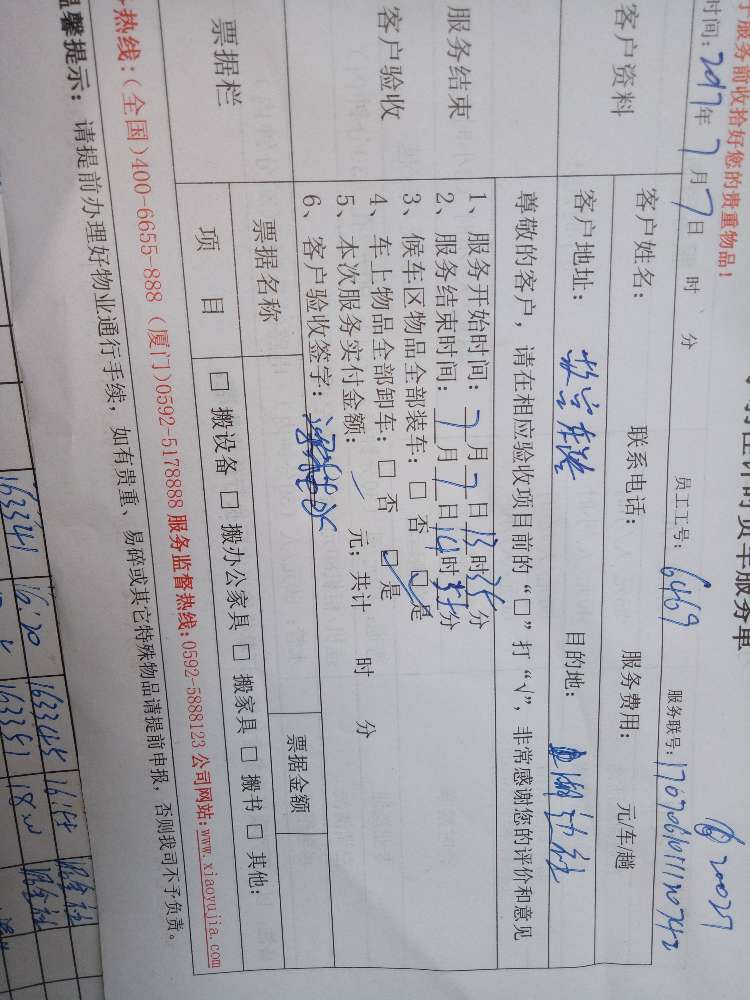 服务前收拾好您的贵重物品!
货车服务单
20027
时间: 2017年 7月 7日 时 分 员工工号: 6469 服务联号:
客户资料
客户姓名: 联系电话: 服务费用: 元/车/趟
客户地址: 目的地:
尊敬的客户，请在相应验收项目前的“□”打“√”，非常感谢您的评价和意见
服务结束
客户验收
1、服务开始时间: 7月7日13时35分
2、服务结束时间: 7月7日14时57分
3、候车区物品全部装车: □ 否 □ 是
4、车上物品全部卸车: □ 否 □ 是
5、本次服务实付金额: 元; 共计 时 分
6、客户验收签字:
票据栏
票据名称 票据金额
项 目 □ 搬设备 □ 搬办公家具 □ 搬家具 □ 搬书 □ 其他:
热线:(全国)400-6655-888 (厦门)0592-5178888 服务监督热线:0592-5888123 公司网站:www.xiaoyujia.com
温馨提示: 请提前办理好物业通行手续，如有贵重、易碎或其它特殊物品请提前申报，否则我司不予负责。
163345 16:54
163341 16:20 163351